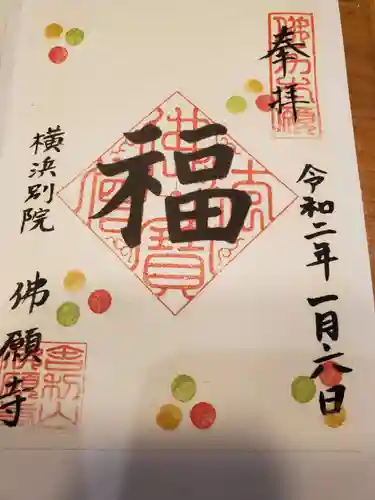 奉拝
令和二年一月六日
福
横浜別院
佛願寺